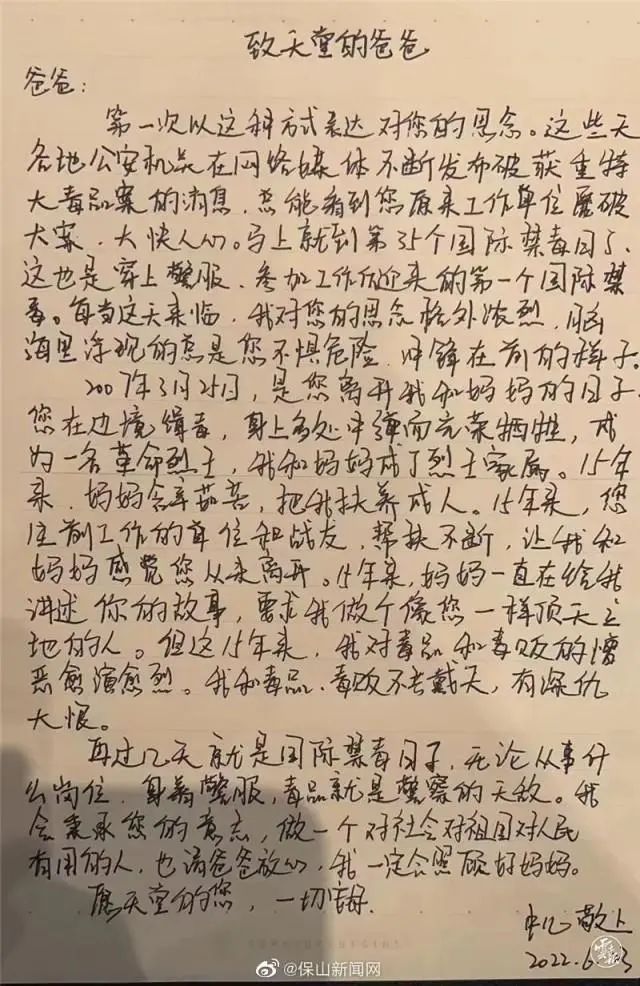 致天堂的爸爸
爸爸：
第一次以这种方式表达对您的思念。这些天
各地公安机关在网络媒体不断发布破获重特
大毒品案的消息，总能看到您原来工作单位屡破
大案，大快人心。马上就到第35个国际禁毒日了，
这也是穿上警服、参加工作后迎来的第一个国际禁
毒。每当这天来临，我对您的思念格外浓烈，脑
海里浮现的总是您不惧危险、冲锋在前的样子。
2007年3月25日，是您离开我和妈妈的日子，
您在边境缉毒，身上多处中弹而光荣牺牲，成
为一名革命烈士，我和妈妈成了烈士家属。15年
来，妈妈含辛茹苦，把我扶养成人。15年来，您
生前工作的单位和战友，帮扶不断，让我和
妈妈感觉您从未离开。15年来，妈妈一直在给我
讲述你的故事，要求我做个像您一样顶天立
地的人。但这15年来，我对毒品和毒贩的憎
恶愈演愈烈。我和毒品、毒贩不共戴天，有深仇
大恨。
再过几天就是国际禁毒日了，无论从事什
么岗位，身着警服，毒品就是警察的天敌。我
会秉承您的意志，做一个对社会对祖国对人民
有用的人，也请爸爸放心，我一定会照顾好妈妈。
愿天堂的您，一切安好。
敬上
2022.6
@保山新闻网